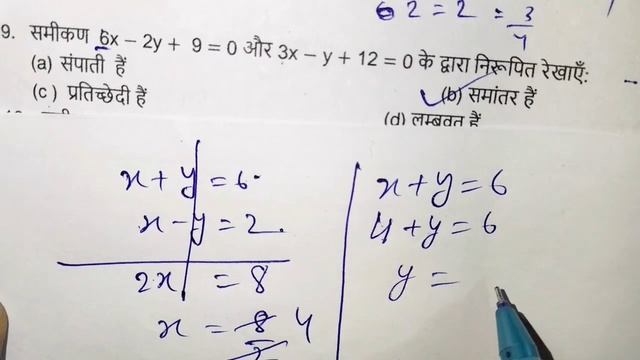 6 2 = 2 = 3/4
9. समीकण 6x – 2y + 9 = 0 और 3x – y + 12 = 0 के द्वारा निरूपित रेखाएँ:
(a) संपाती हैं (b) समांतर हैं
(c) प्रतिच्छेदी हैं (d) लम्बवत हैं
x + y = 6. x + y = 6
x - y = 2. 4 + y = 6
2x = 8 y =
x = 8/2 4